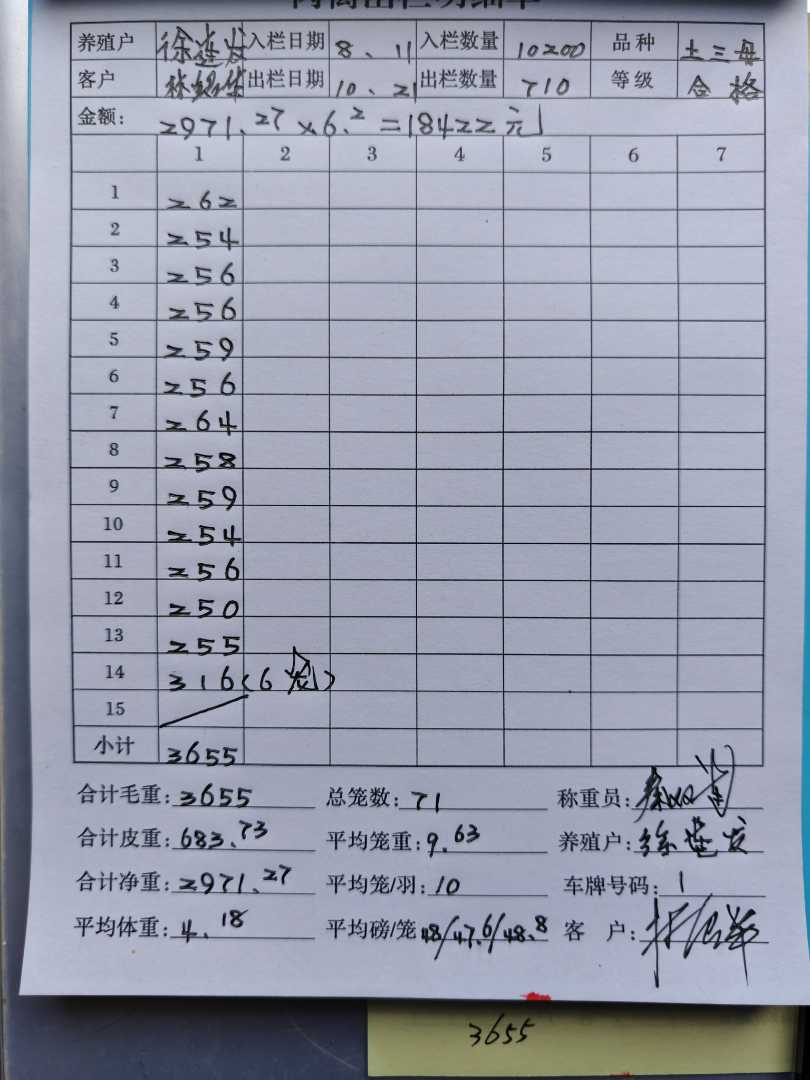 养殖户 徐莲发 入栏日期 8、11 入栏数量 10200 品种 土三母
客户 林绍华 出栏日期 10、21 出栏数量 710 等级 合格
金额： 2971.27×6.2=18422元
1 2 3 4 5 6 7
1 262
2 254
3 256
4 256
5 259
6 256
7 264
8 258
9 259
10 254
11 256
12 250
13 255
14 316(6笼)
15
小计 3655
合计毛重：3655 总笼数：71 称重员：
合计皮重：683.73 平均笼重：9.63 养殖户：徐莲发
合计净重：2971.27 平均笼/羽：10 车牌号码：1
平均体重：4.18 平均磅/笼 48/47.6/48.8 客 户：
3655